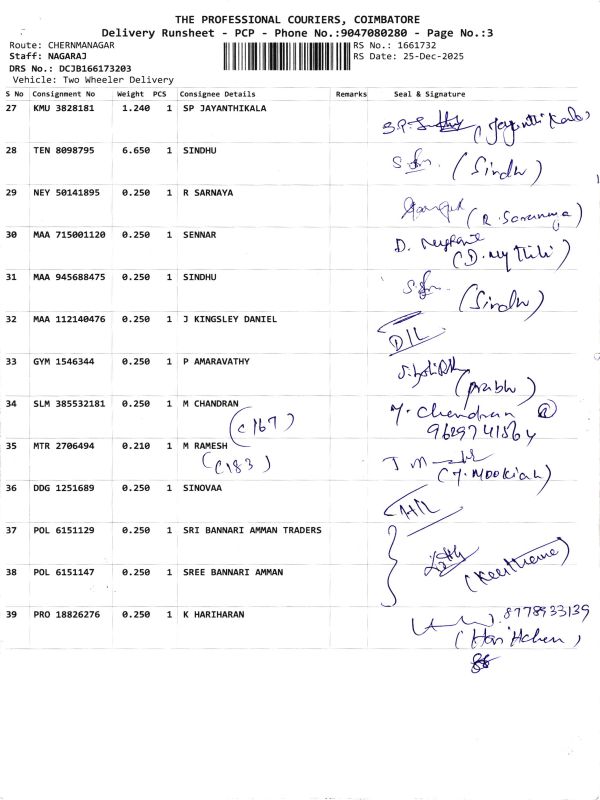 THE PROFESSIONAL COURIERS, COIMBATORE
Delivery Runsheet - PCP - Phone No.:9047080280 - Page No.:3
Route: CHERNMANAGAR RS No.: 1661732
Staff: NAGARAJ RS Date: 25-Dec-2025
DRS No.: DCJB166173203
Vehicle: Two Wheeler Delivery
S No Consignment No Weight PCS Consignee Details Remarks Seal & Signature
27 KMU 3828181 1.240 1 SP JAYANTHIKALA
28 TEN 8098795 6.650 1 SINDHU
(Sindhu)
29 NEY 50141895 0.250 1 R SARNAYA
(R. Saranya)
30 MAA 715001120 0.250 1 SENNAR
(D. Mythili)
31 MAA 945688475 0.250 1 SINDHU
(Sindhu)
32 MAA 112140476 0.250 1 J KINGSLEY DANIEL
D/L
33 GYM 1546344 0.250 1 P AMARAVATHY
(prabhu)
34 SLM 385532181 0.250 1 M CHANDRAN
(C167)
Chandran @
9629741564
35 MTR 2706494 0.210 1 M RAMESH
(C183)
(T. Mookiah)
36 DDG 1251689 0.250 1 SINOVAA
37 POL 6151129 0.250 1 SRI BANNARI AMMAN TRADERS
38 POL 6151147 0.250 1 SREE BANNARI AMMAN
39 PRO 18826276 0.250 1 K HARIHARAN
8778933139